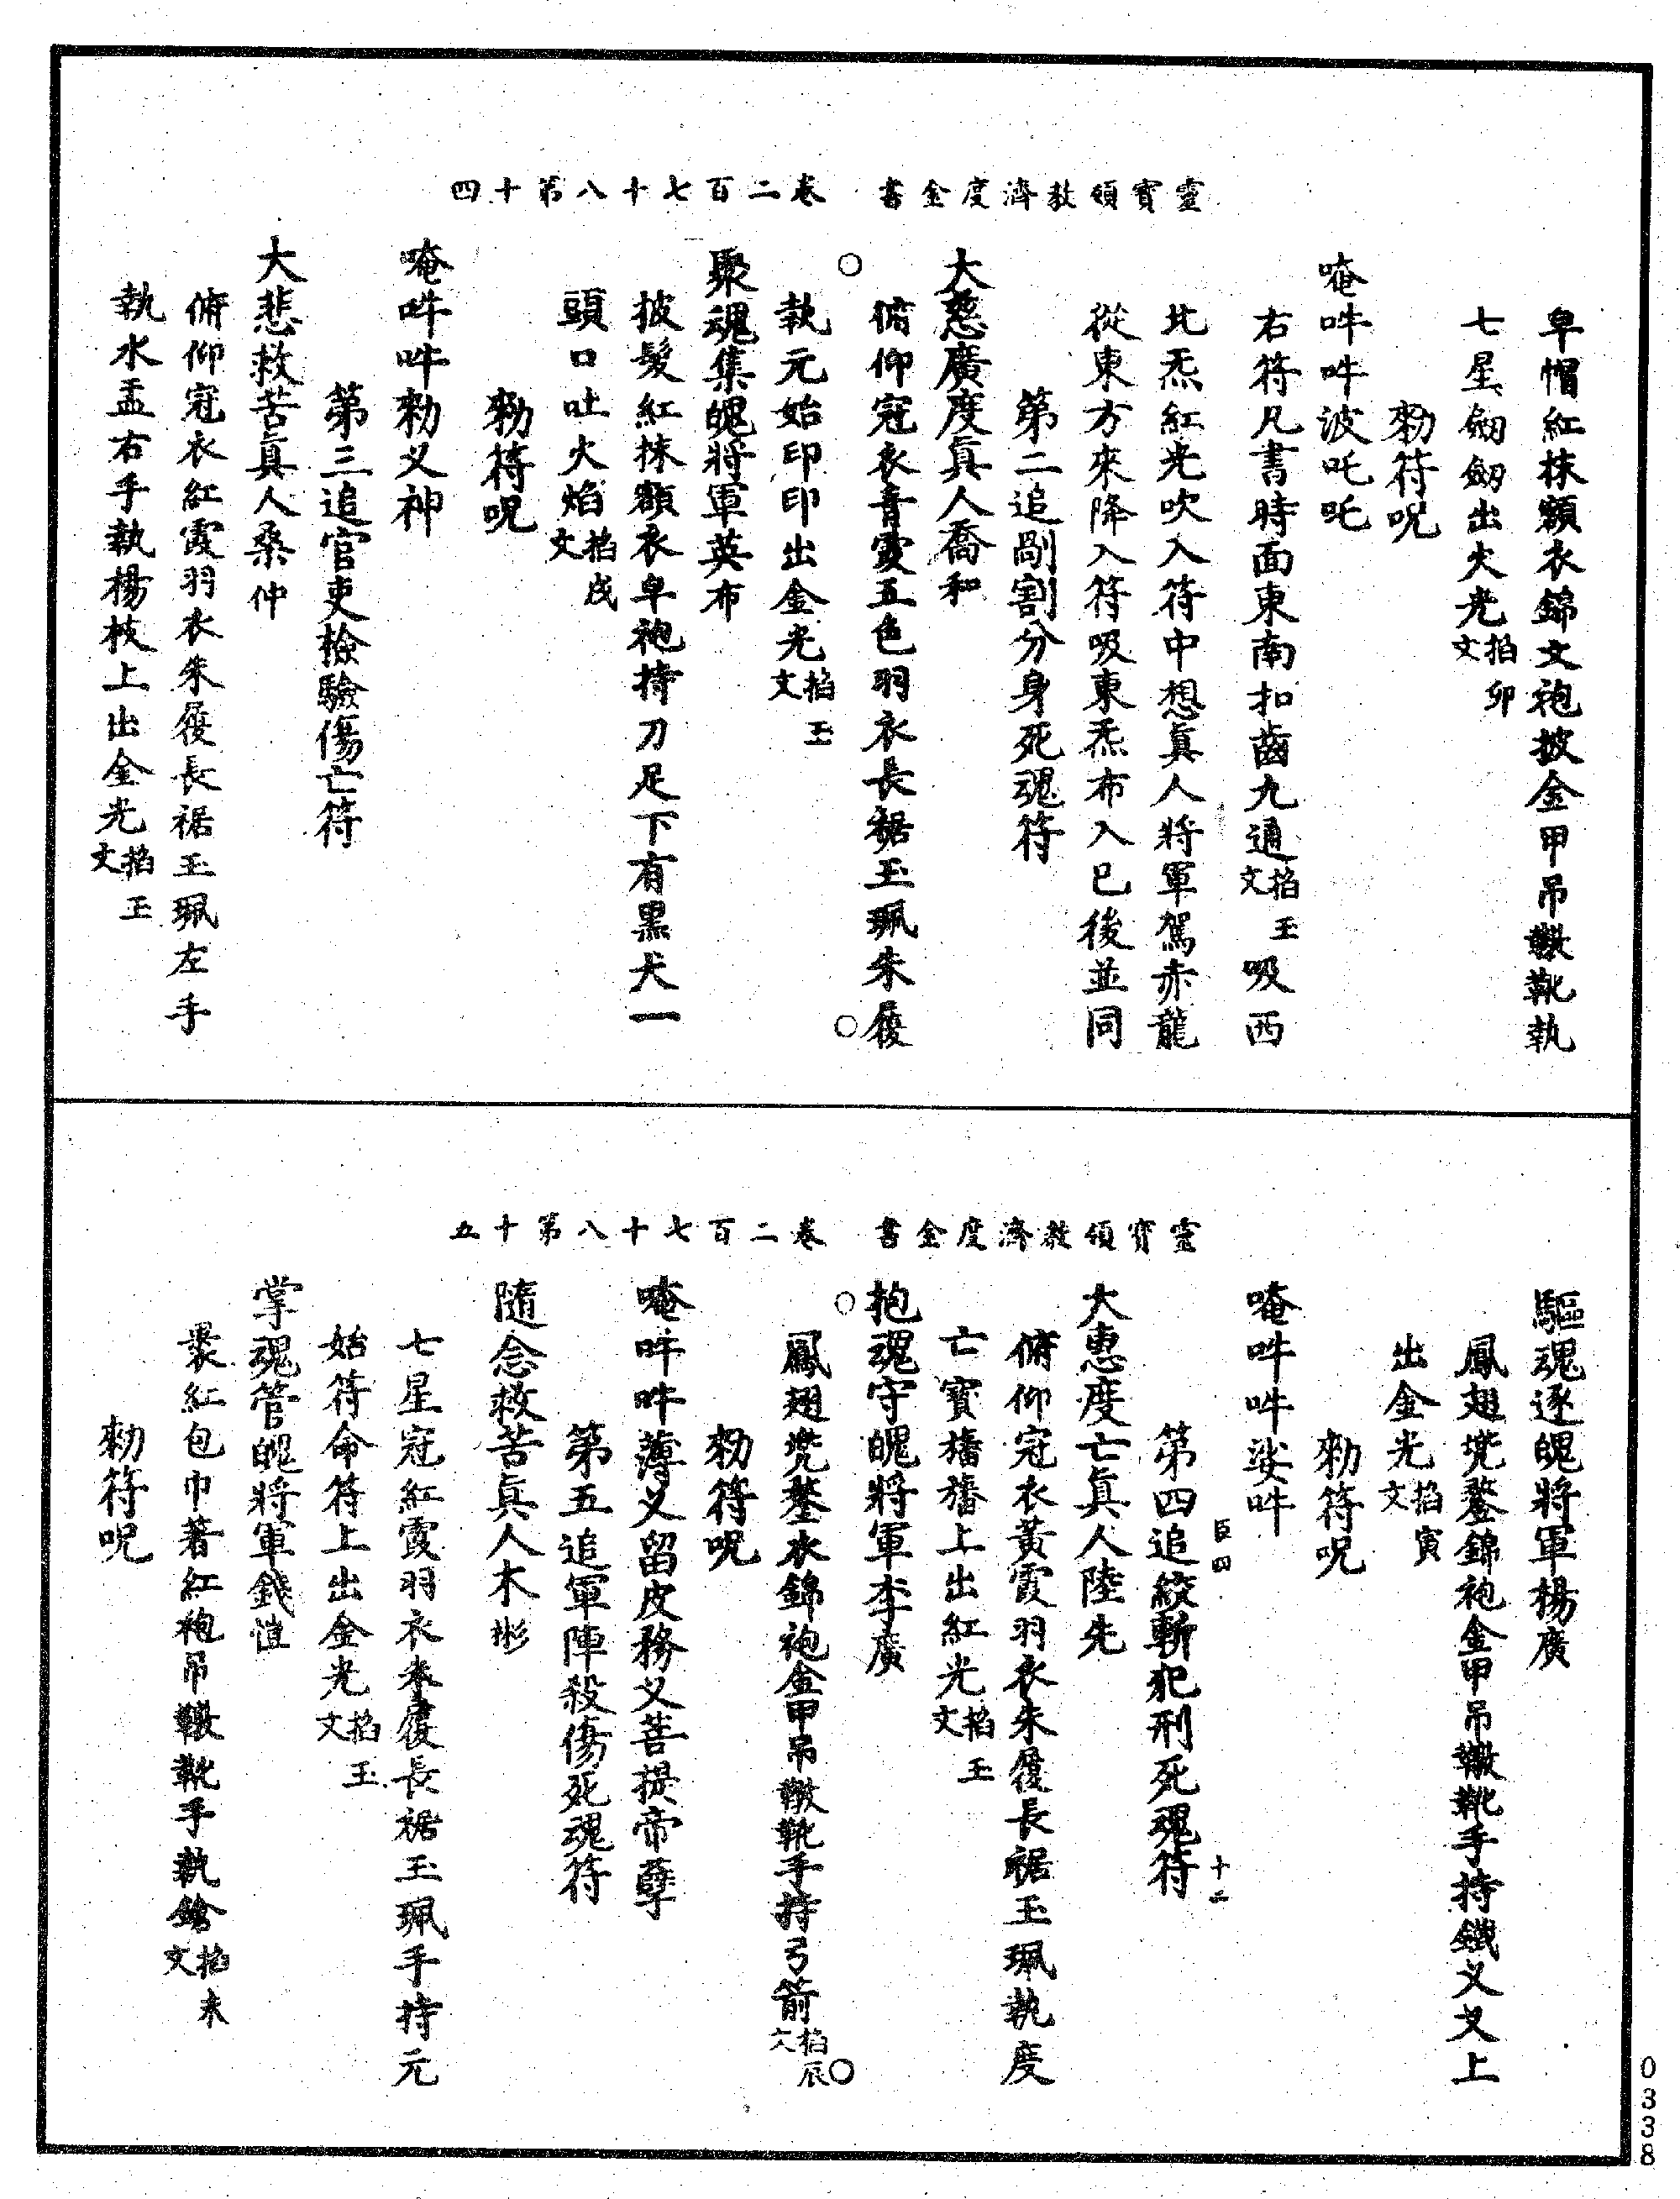 靈寶領教濟度金書　卷二百七十八第十四
皁帽紅抹額衣錦文袍披金甲吊䩮靴執
七星劒劒出火光掐卯文
勑符呪
唵吽吽波吒吒
右符凡書時面東南扣齒九通掐玉文吸西
北炁紅光吹入符中想眞人將軍駕赤龍
從東方來降入符吸東炁布入巳後並同
第二追剮割分身死魂符
大慈廣度眞人喬和
俯仰冠衣青霞五色羽衣長裾玉珮朱履
執元始印印出金光掐玉文
聚魂集魄將軍英布
披髮紅抹額衣皁袍持刀足下有黑犬一
頭口吐火焰掐戌文
勑符呪
唵吽吽勑义神
第三追官吏檢驗傷亡符
大悲救苦眞人桑仲
俯仰冠衣紅霞羽衣朱履長裾玉珮左手
執水盂右手執楊枝上出金光掐玉文
靈寶領教濟度金書　卷二百七十八第十五
驅魂逐魄將軍楊廣
鳳翅兠鍪錦袍金甲吊䩮靴手持鐵义义上
出金光掐寅文
勑符呪
唵吽吽娑吽
第四追絞斬犯刑死魂符
臣四　十二
大惠度亡眞人陸先
俯仰冠衣黃霞羽衣朱履長裾玉珮執度
亡寶旛旛上出紅光掐玉文
抱魂守魄將軍李廣
鳳翅兠鍪衣錦袍金甲吊䩮靴手持弓箭掐辰文
勑符呪
唵吽吽薄义留皮務义菩提帝孽
第五追軍陣殺傷死魂符
隨念救苦眞人木彬
七星冠紅霞羽衣朱履長裾玉珮手持元
始符命符上出金光掐玉文
掌魂管魄將軍錢愷
裹紅包巾著紅袍吊䩮靴手執鎗掐未文
勑符呪
0338